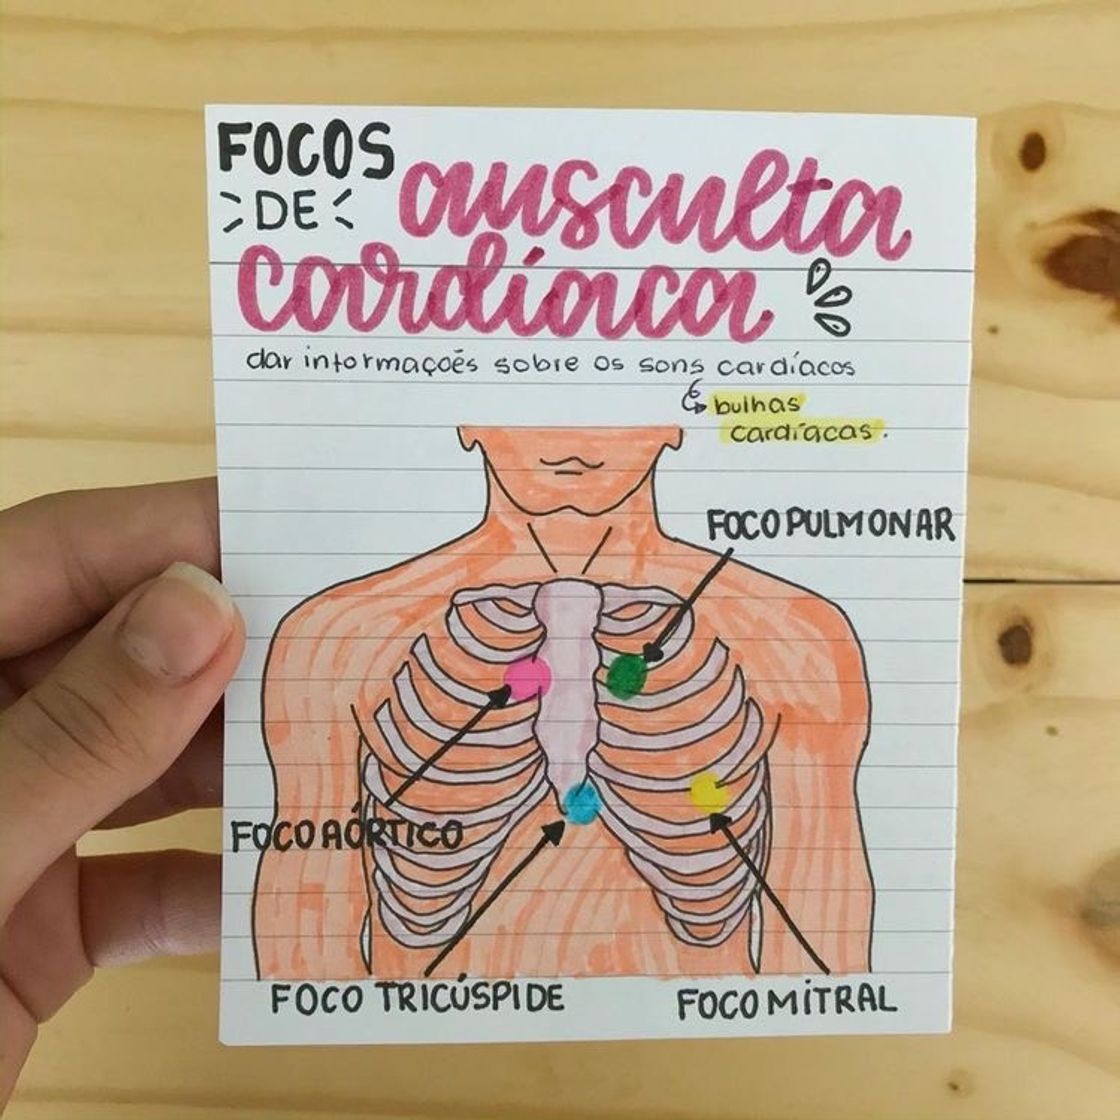 FOCOS
DE ausculta
cardíaca
dar informaçoẽs sobre os sons cardíacos
bulhas
cardíacas.
FOCO PULMONAR
FOCO AÓRTICO
FOCO TRICÚSPIDE
FOCO MITRAL